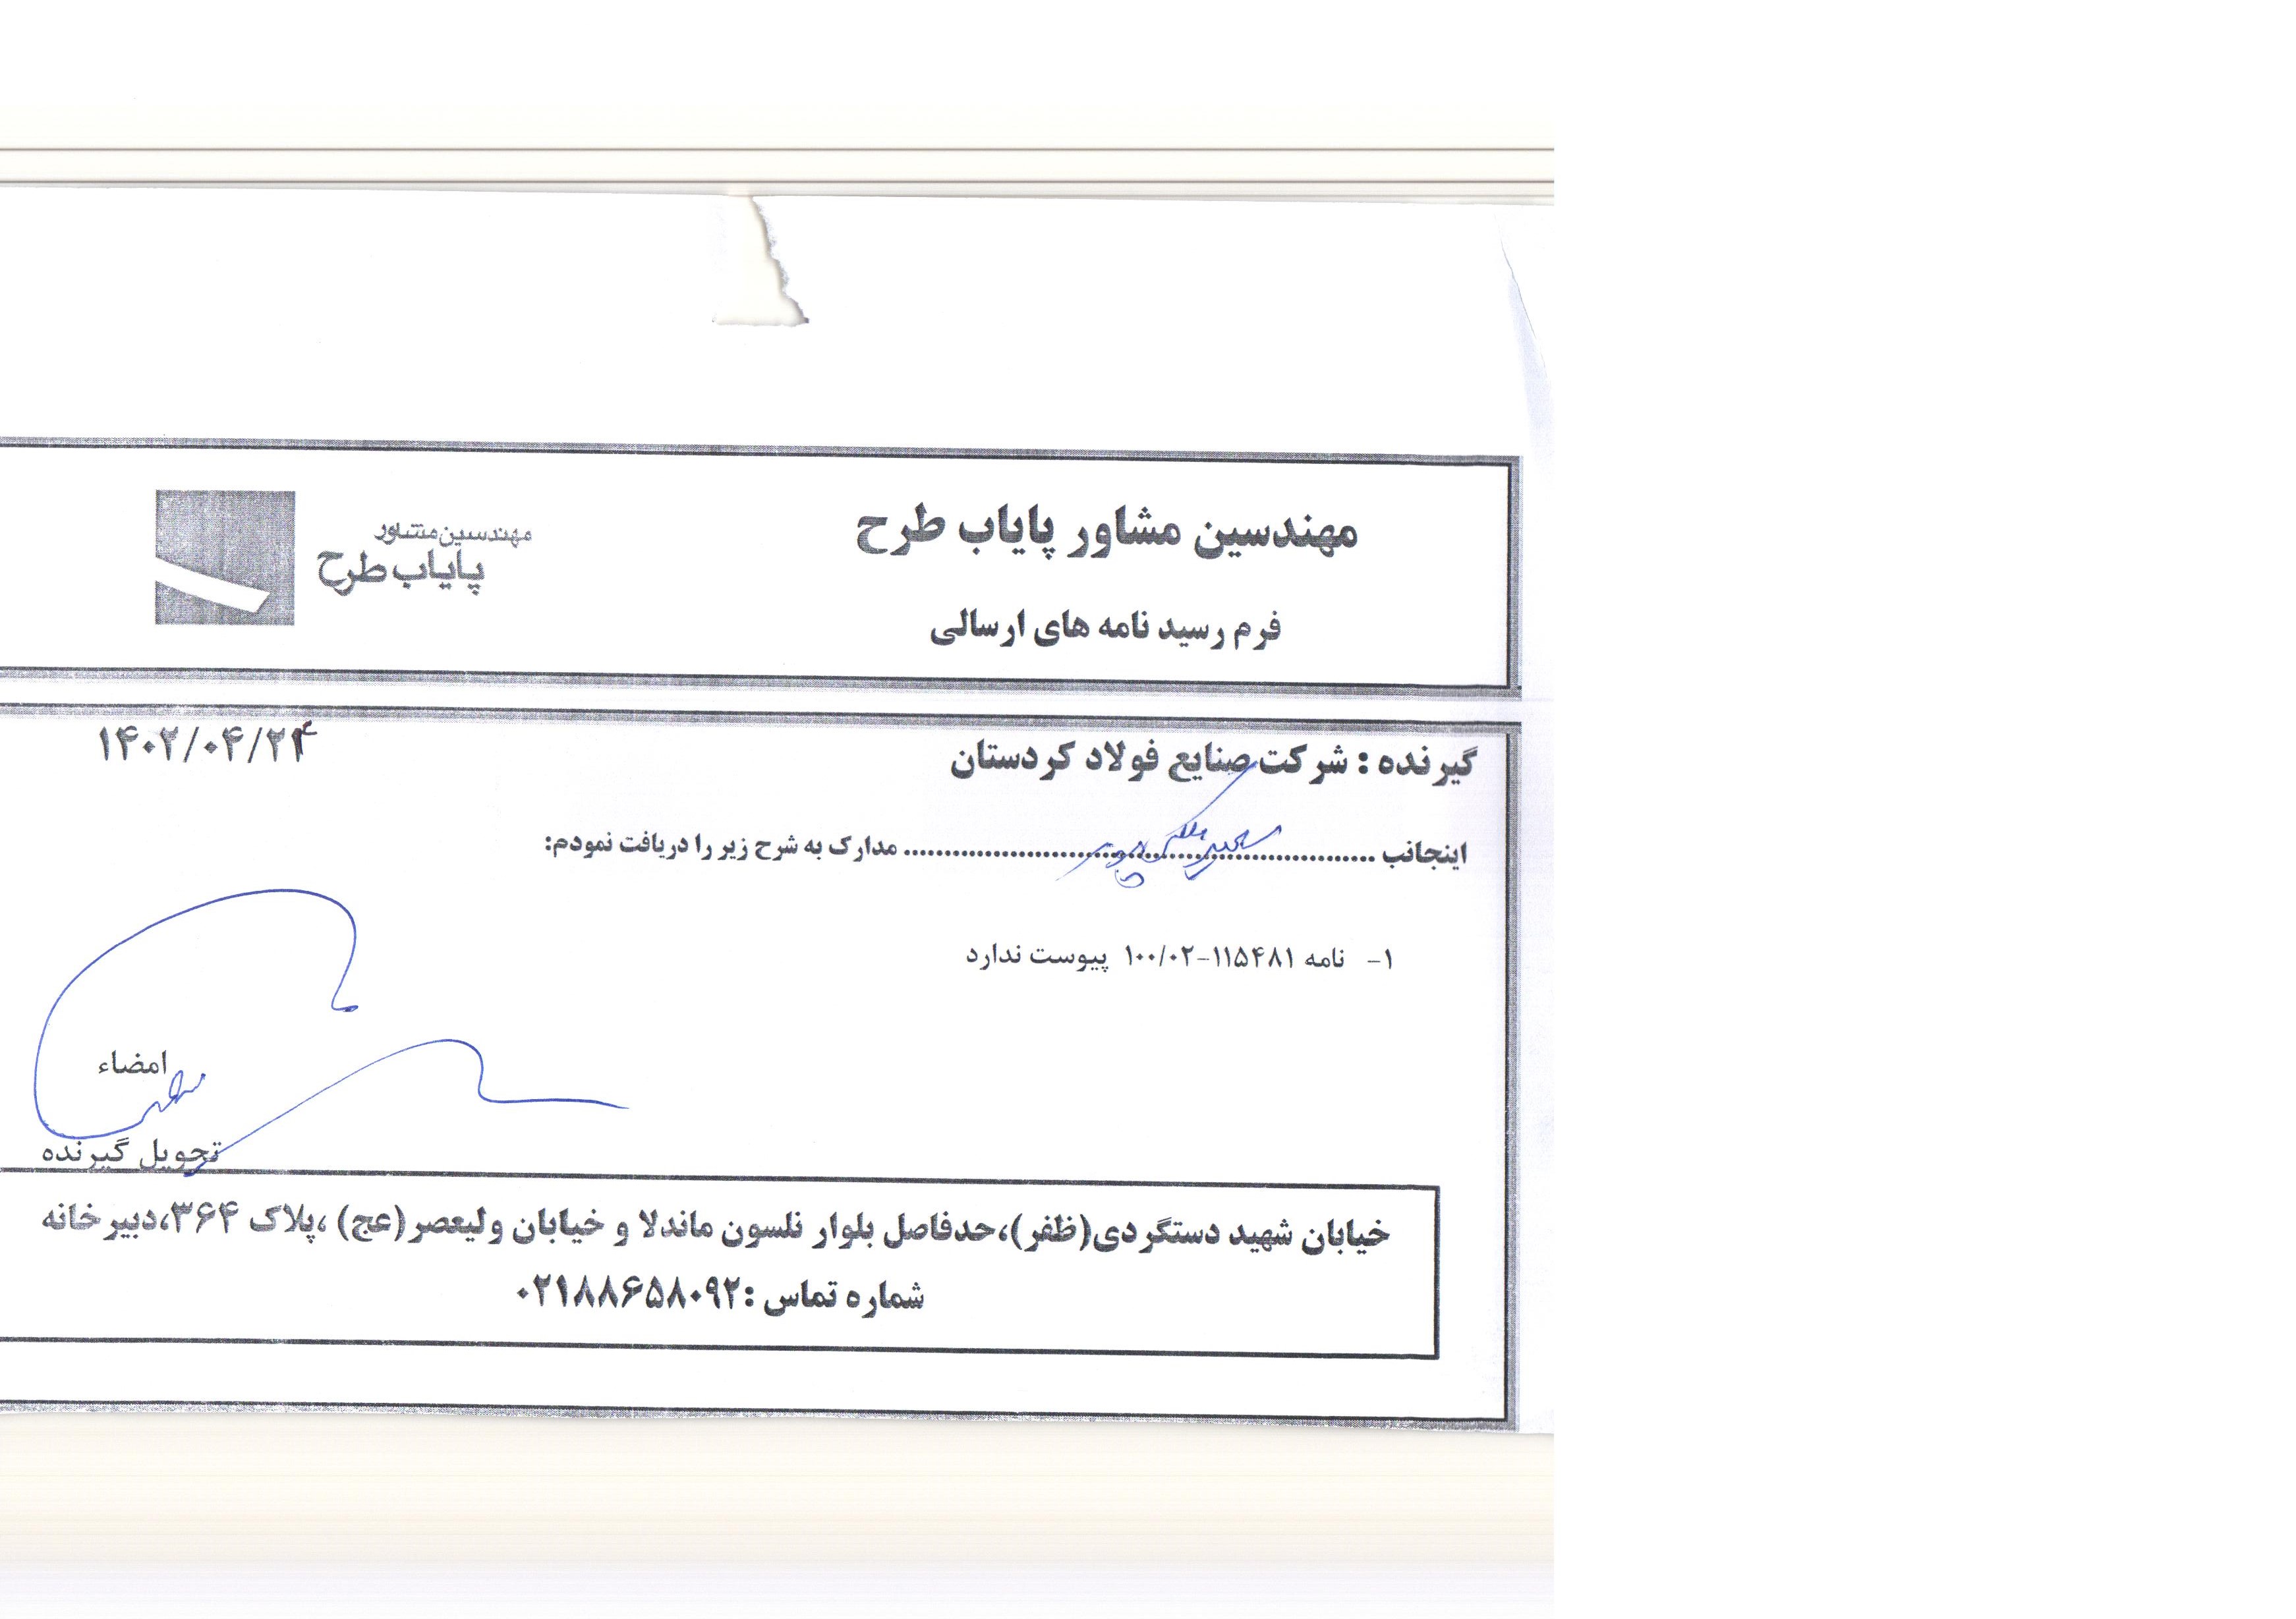 مهندسین مشاور پایاب طرح
مهندسین مشاور
پایاب طرح
فرم رسید نامه های ارسالی
گیرنده : شرکت صنایع فولاد کردستان
۱۴۰۲/۰۴/۲۴
اینجانب .................... مدارک به شرح زیر را دریافت نمودم:
۱- نامه ۱۱۵۴۸۱-۱۰۰/۰۲ پیوست ندارد
امضاء
تحویل گیرنده
خیابان شهید دستگردی(ظفر)،حدفاصل بلوار نلسون ماندلا و خیابان ولیعصر(عج) ،پلاک ۳۶۴،دبیرخانه
شماره تماس :۰۲۱۸۸۶۵۸۰۹۲